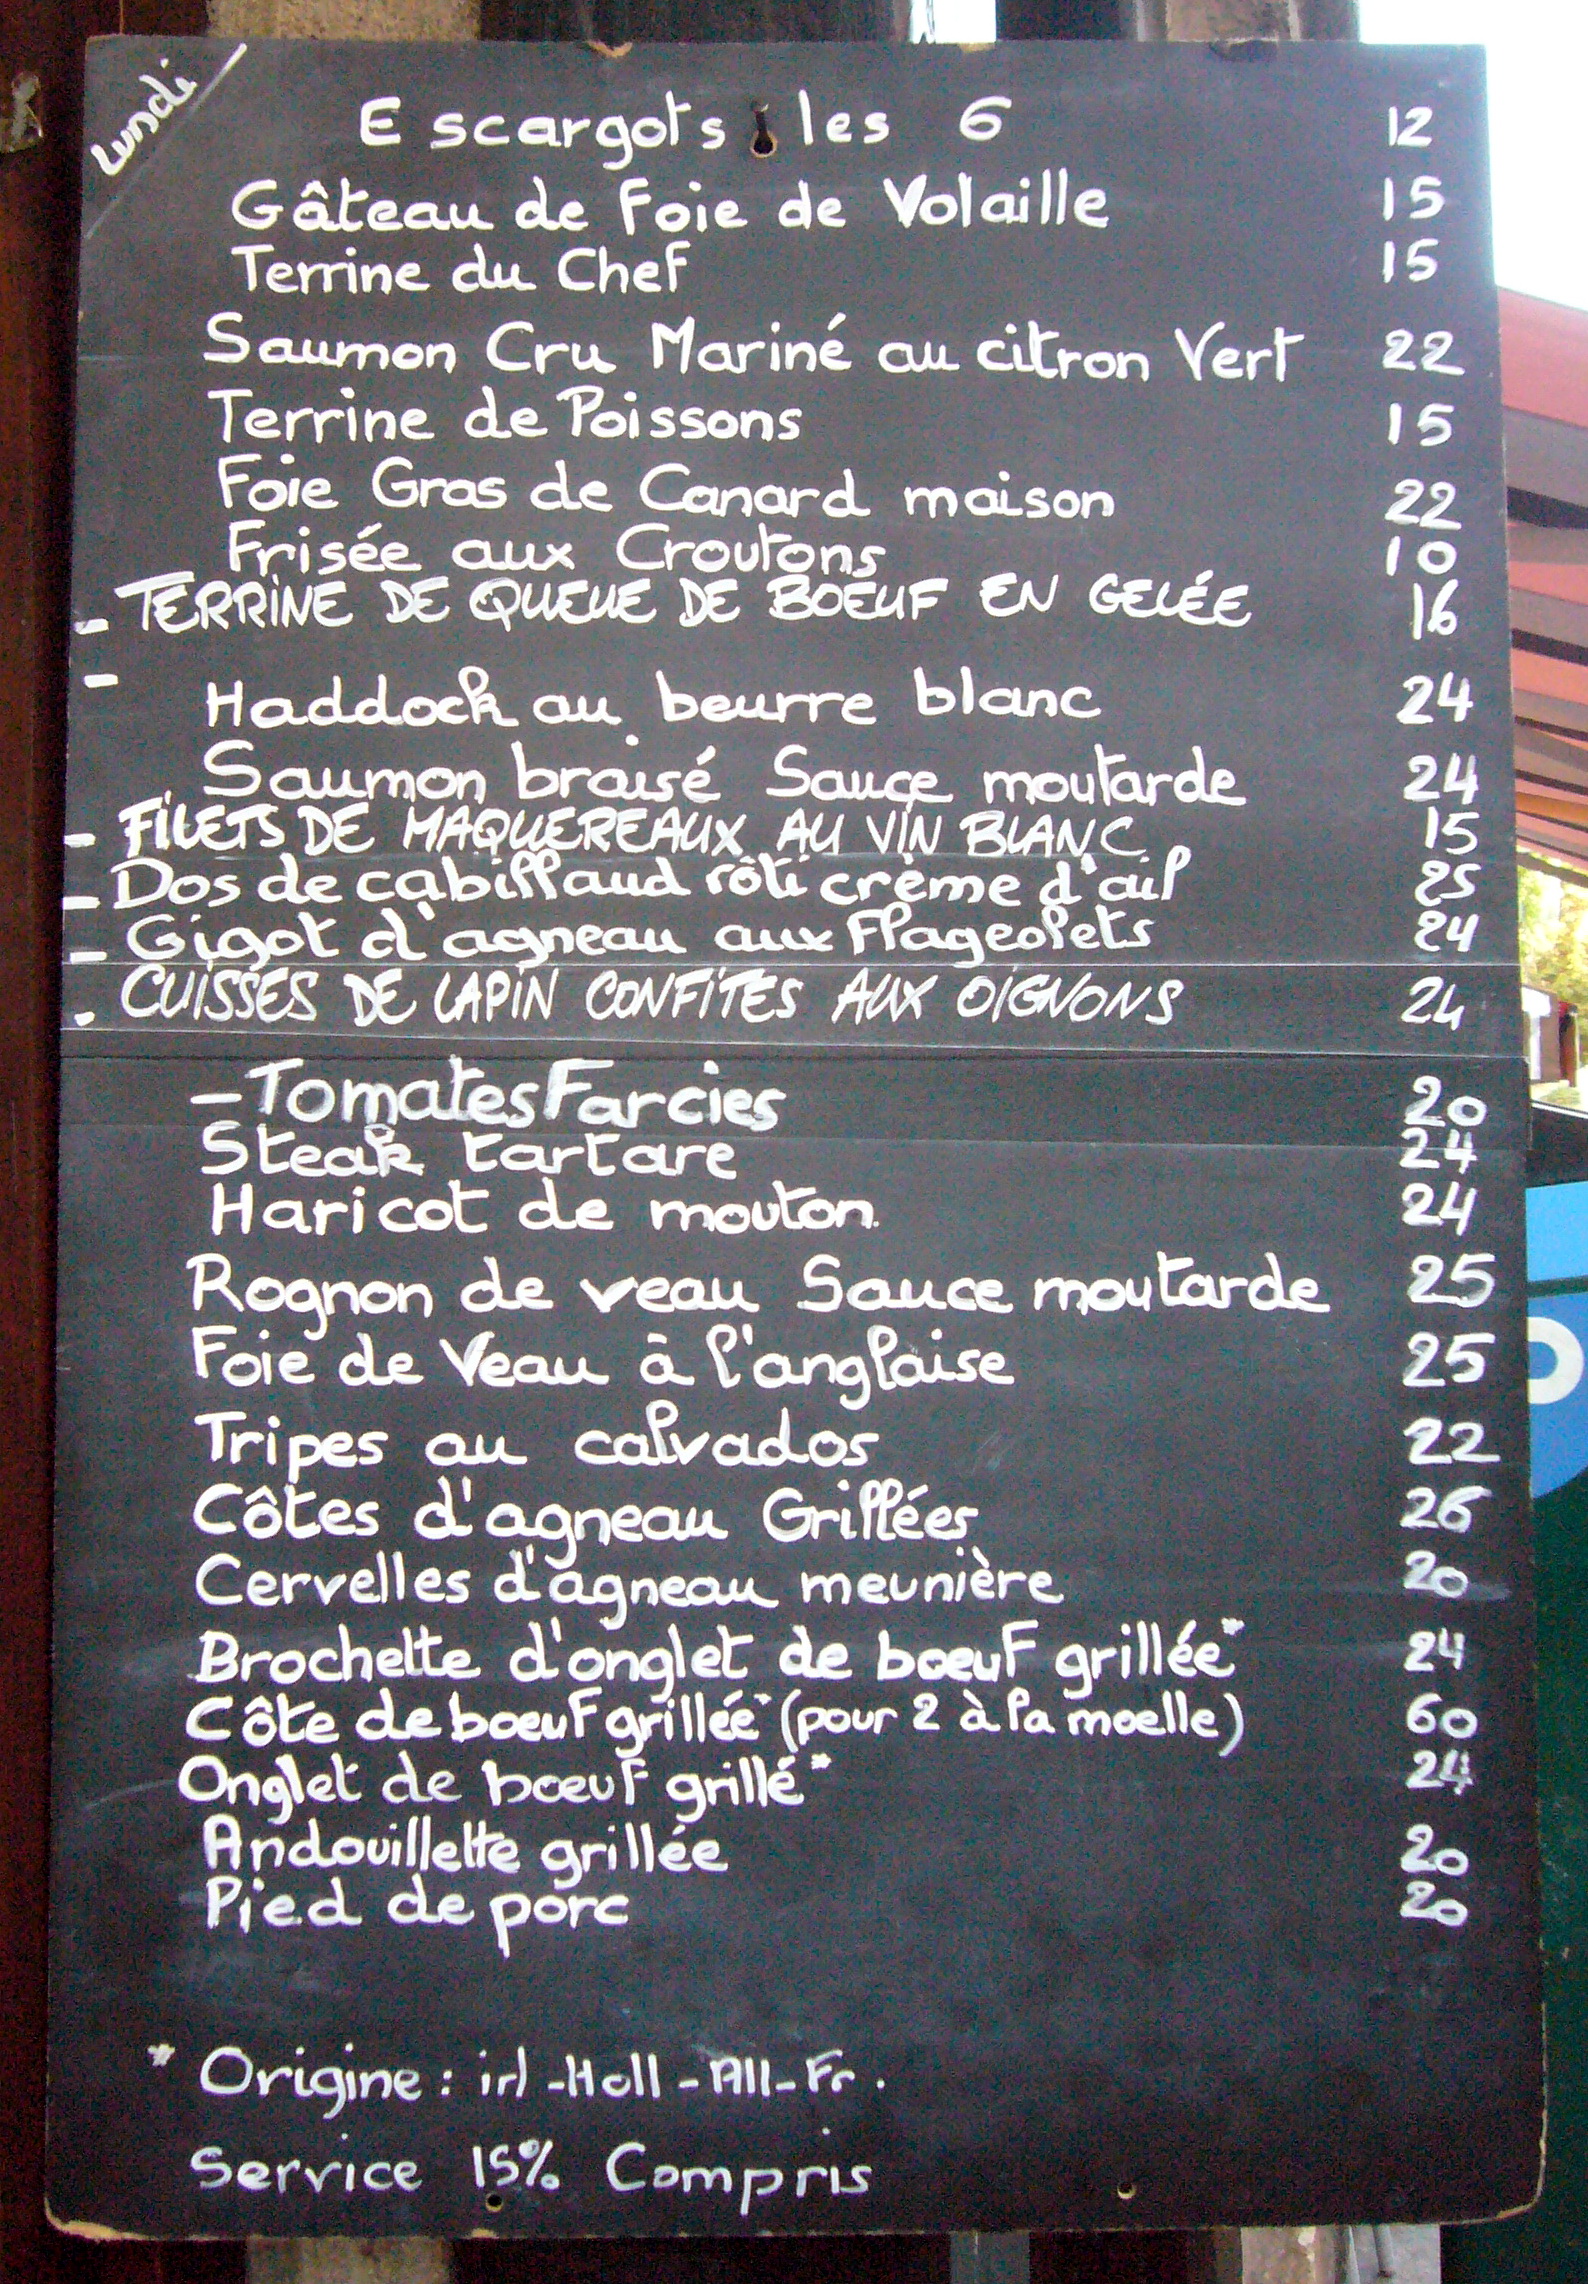 Lundi
Escargots les 6 12
Gâteau de Foie de Volaille 15
Terrine du Chef 15
Saumon Cru Mariné au citron Vert 22
Terrine de Poissons 15
Foie Gras de Canard maison 22
Frisée aux Croutons 10
- TERRINE DE QUEUE DE BOEUF EN GELÉE 16
-
Haddock au beurre blanc 24
Saumon braisé Sauce moutarde 24
- FILETS DE MAQUEREAUX AU VIN BLANC 15
- Dos de cabillaud rôti crème d'ail 25
- Gigot d'agneau aux Flageolets 24
- CUISSES DE LAPIN CONFITES AUX OIGNONS 24
- Tomates Farcies 20
Steak tartare 24
Haricot de mouton. 24
Rognon de veau Sauce moutarde 25
Foie de Veau à l'anglaise 25
Tripes au calvados 22
Côtes d'agneau Grillées 26
Cervelles d'agneau meunière 20
Brochette d'onglet de bœuf grillée* 24
Côte de boeuf grillée* (pour 2 à la moelle) 60
Onglet de bœuf grillé* 24
Andouillette grillée 20
Pied de porc 20
* Origine : irl - Holl - All - Fr.
Service 15% Compris